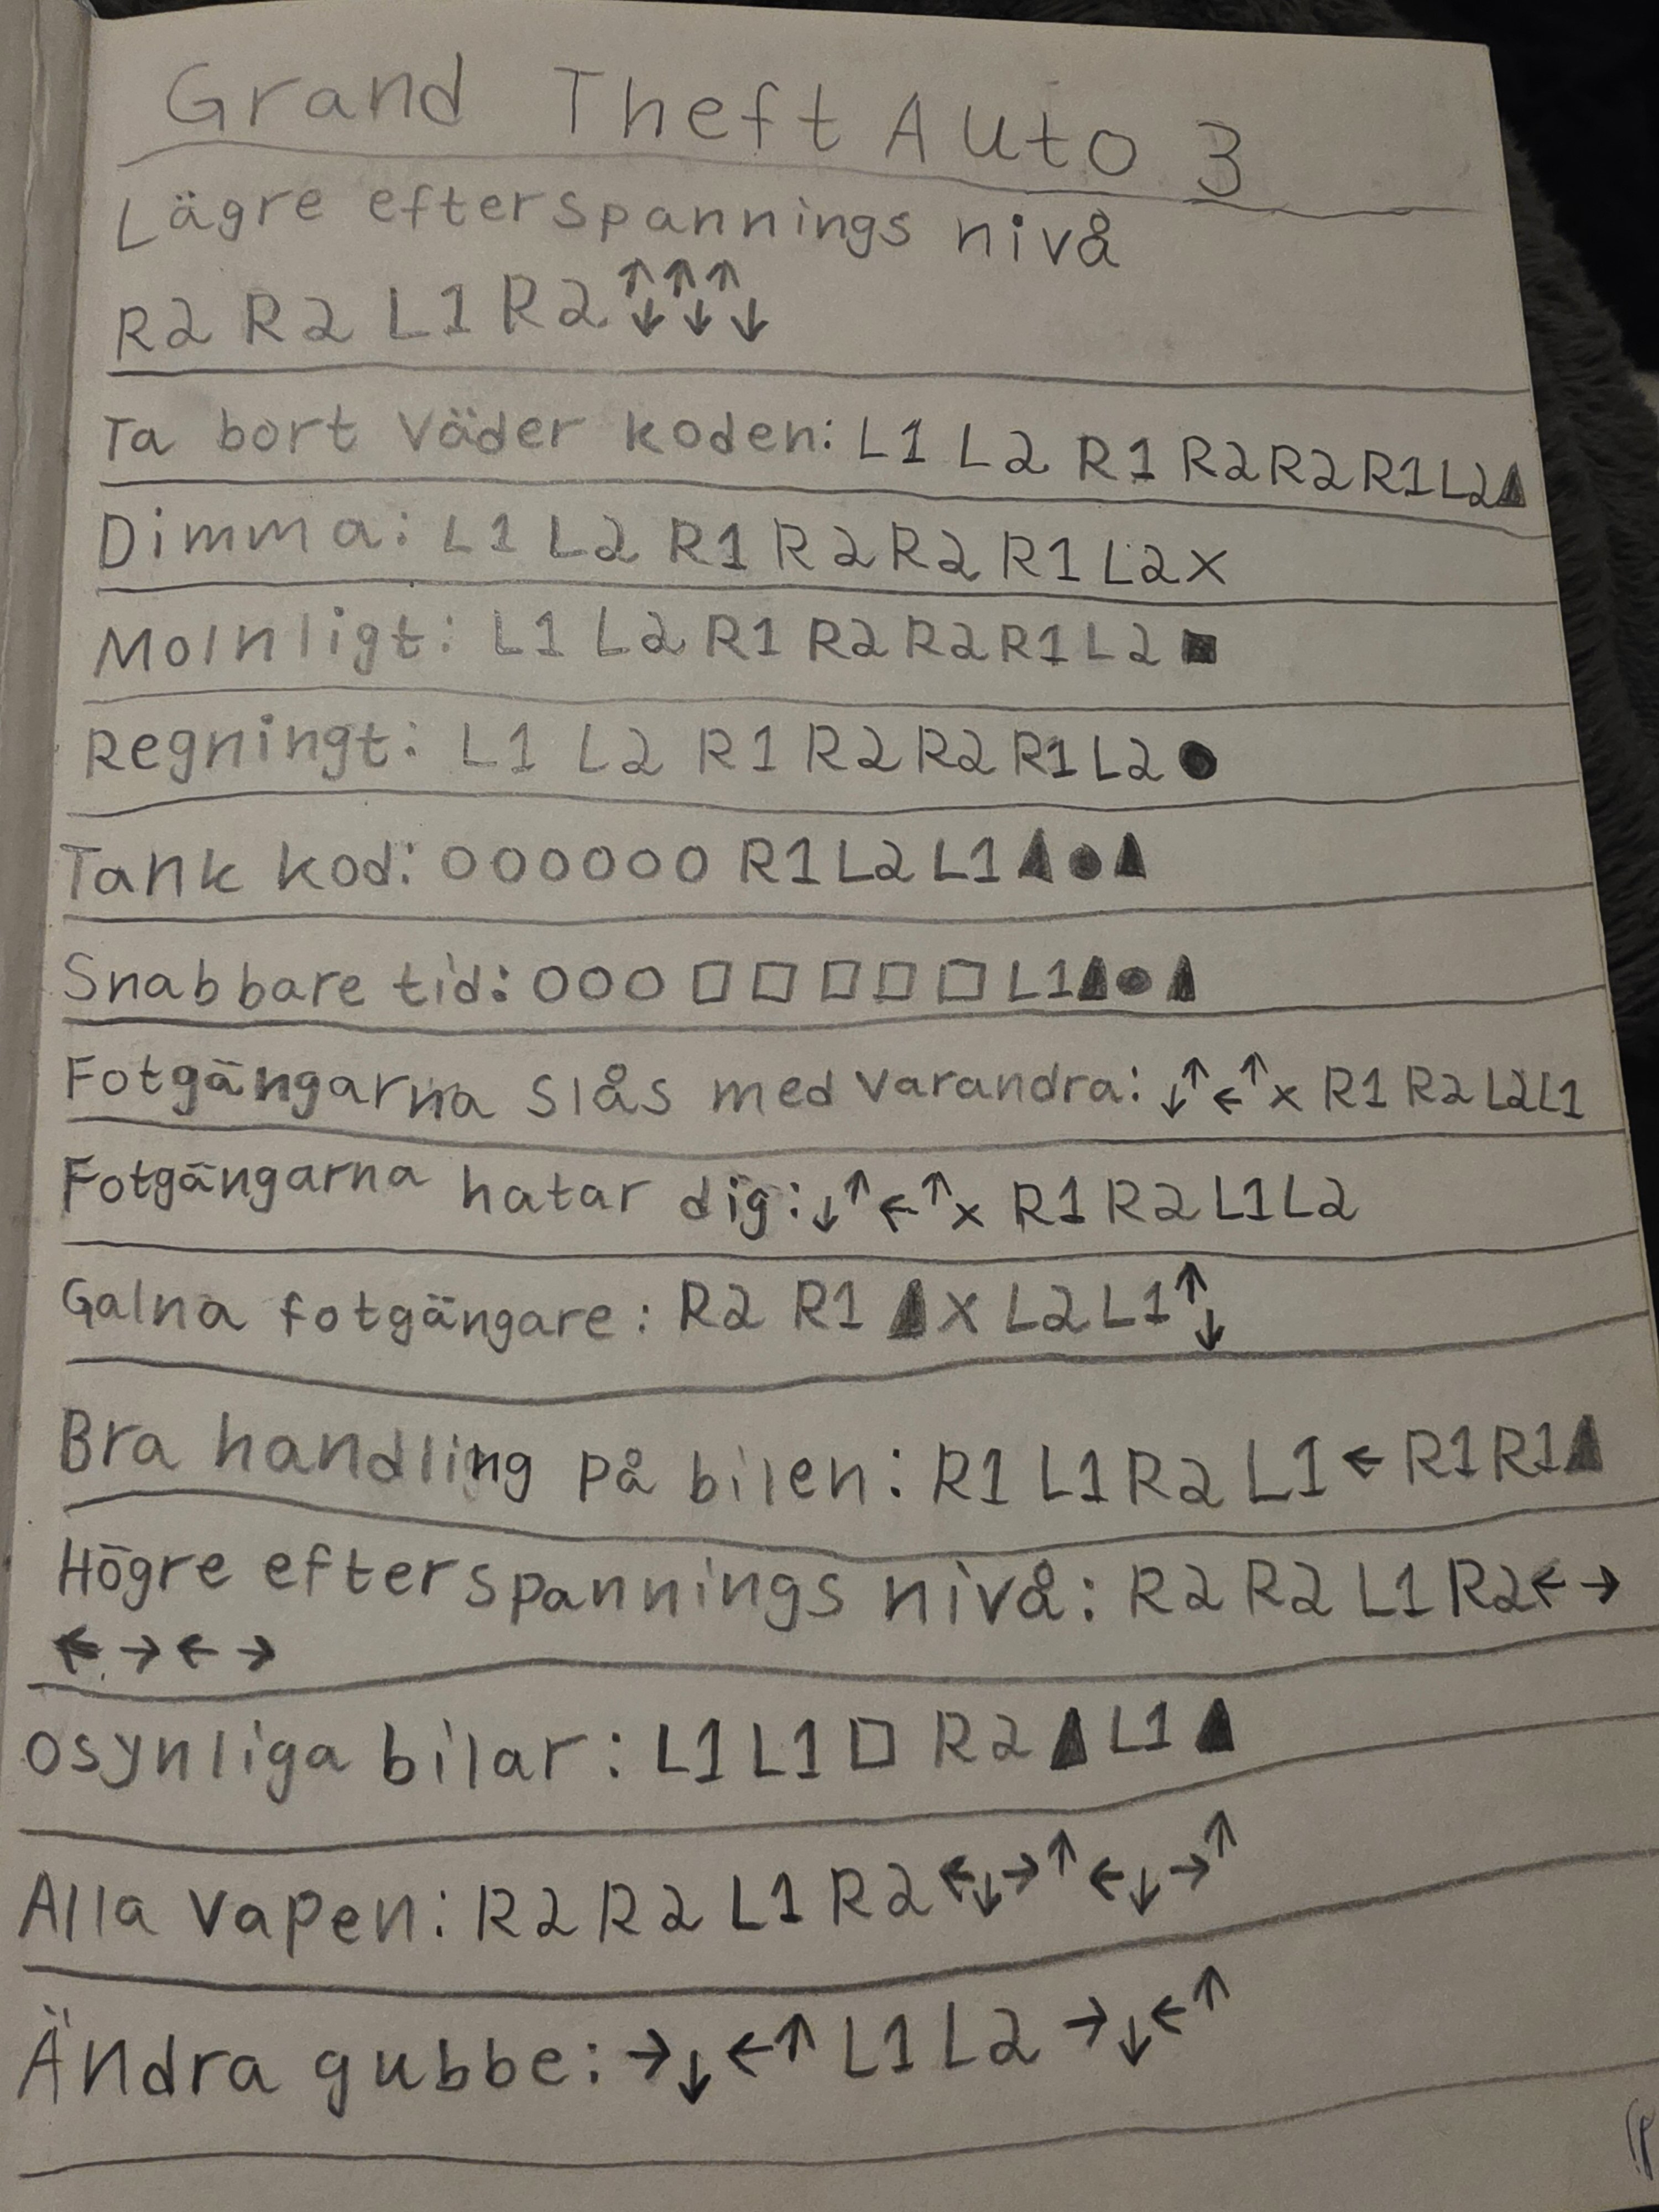 Grand Theft Auto 3
Lägre efterspannings nivå
R2 R2 L1 R2 ↑↓↑↓↑↓
Ta bort väder koden: L1 L2 R1 R2 R2 R1 L2 ▲
Dimma: L1 L2 R1 R2 R2 R1 L2 X
Molnligt: L1 L2 R1 R2 R2 R1 L2 ■
Regningt: L1 L2 R1 R2 R2 R1 L2 ●
Tank kod: OOOOOO R1 L2 L1 ▲●▲
Snabbare tid: OOO □□□□□ L1 ▲●▲
Fotgängarna slås med varandra: ↓↑←↑x R1 R2 L2 L1
Fotgängarna hatar dig: ↓↑←↑x R1 R2 L1 L2
Galna fotgängare: R2 R1 ▲ X L2 L1 ↑↓
Bra handling på bilen: R1 L1 R2 L1 ← R1 R1 ▲
Högre efterspannings nivå: R2 R2 L1 R2 ← →
← → ← →
Osynliga bilar: L1 L1 □ R2 ▲ L1 ▲
Alla vapen: R2 R2 L1 R2 ←↓→↑←↓→↑
Ändra gubbe: →↓←↑ L1 L2 →↓←↑